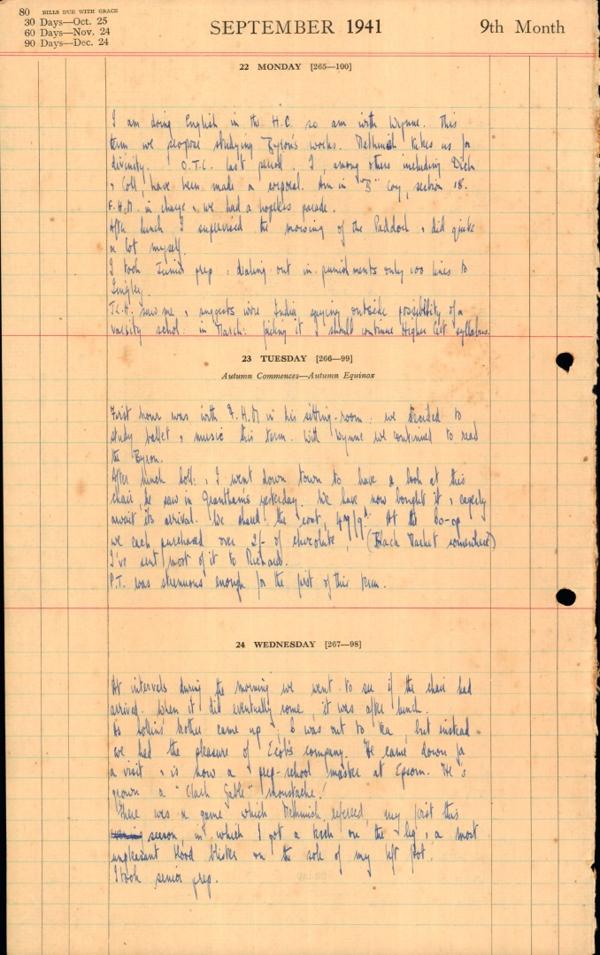 80 BILLS DUE WITH GRACE
30 Days—Oct. 25
60 Days—Nov. 24
90 Days—Dec. 24
SEPTEMBER 1941
9th Month
22 MONDAY [265—100]
I am doing English in the H.C. so am with Wynne. This
term we propose studying Byron's works. takes us for
divinity. O.T.C. last period. I, among others including Dick
& Coll, have been made a corporal. Am in "B" coy, section 18.
F.H.M. in charge & we had a hopeless parade.
After lunch I supervised the mowing of the Paddock & did quite
a lot myself.
I took Junior prep, dealing out in punishments only 100 lines to
Langley.
saw me & suggests outside possibility of a
varsity schol: in March: I should continue Higher Cert syllabus.
23 TUESDAY [266—99]
Autumn Commences—Autumn Equinox
First hour was with F.H.M in his sitting-room. we decided to
study ballet & music this term. With Wynne we continued to read
the Byron.
After lunch Coll: & I went down town to have a look at this
chair he saw in Grantham's yesterday. We have now bought it & eagerly
await its arrival. We shared the cost, 47/9d. At the Co-op
we each purchased over 2/- of chocolate (Black Market somewhere!)
I've sent most of it to Richard.
P.T. was strenuous enough for the first of this term.
24 WEDNESDAY [267—98]
At intervals during the morning we went to see if the chair had
arrived. When it did eventually come, it was after lunch.
As Collins' Mother came up & was out to tea, but instead
we had the pleasure of company. He came down for
a visit & is now a prep-school master at Epsom. He's
grown a "Clark Gable" moustache!
There was a game which refereed, my first this
season, in which I got a kick on the leg & a most
unpleasant blood blister on the sole of my left foot.
I took senior prep.